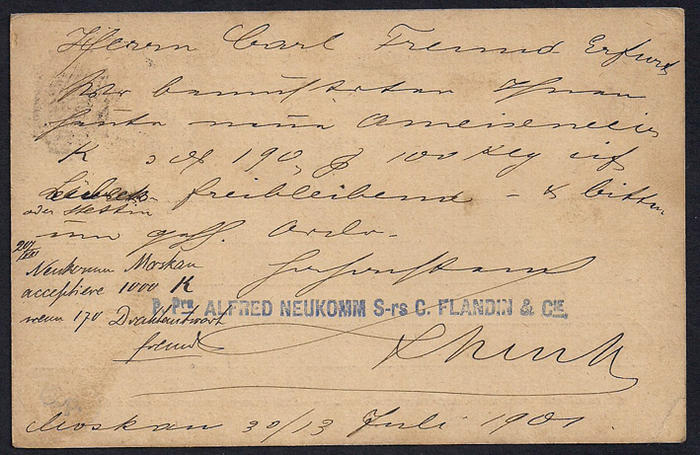 Herrn Carl Freund Erfurt
Wir bemusterten Ihnen
heute neue Ameiseneier
K à M 190,- p 100 Kg cif
Lübeck freibleibend - & bitten
oder Stettin
um gefl. Ordre.
20/VII
Neukomm Moskau
acceptiere 1000 K
wenn 170 Drahtantwort
freund
Hochachtend
P. Pra ALFRED NEUKOMM S-rs C. FLANDIN & CIE.
Moskau 30/13 Juli 1901.